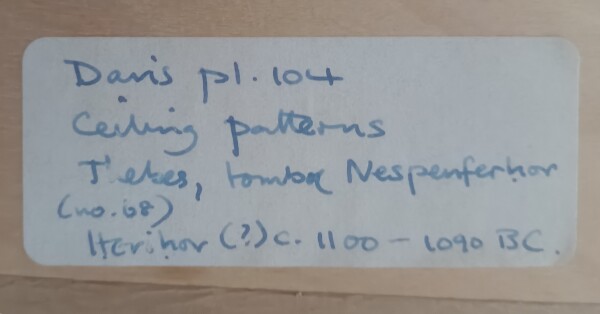 Davis pl. 104
Ceiling patterns
Thebes, tomb of Nespenferhor
(no. 68)
Herihor (?) c. 1100 - 1090 BC.